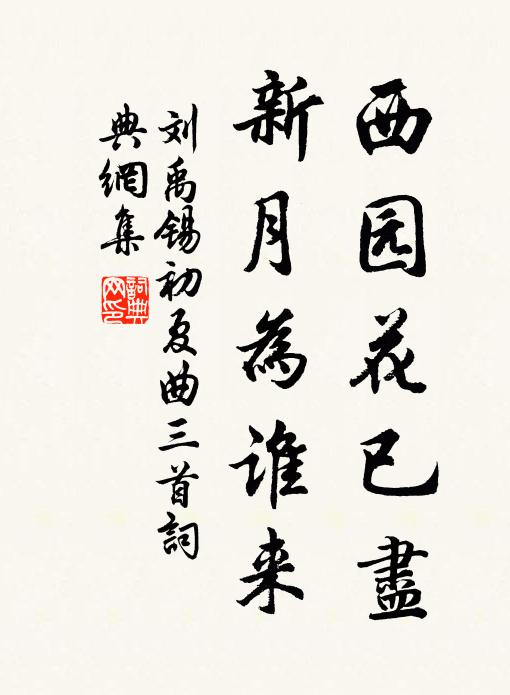 西园花已盡
新月為谁来
刘禹锡初夏曲三首詞
典網集
詞典
网印